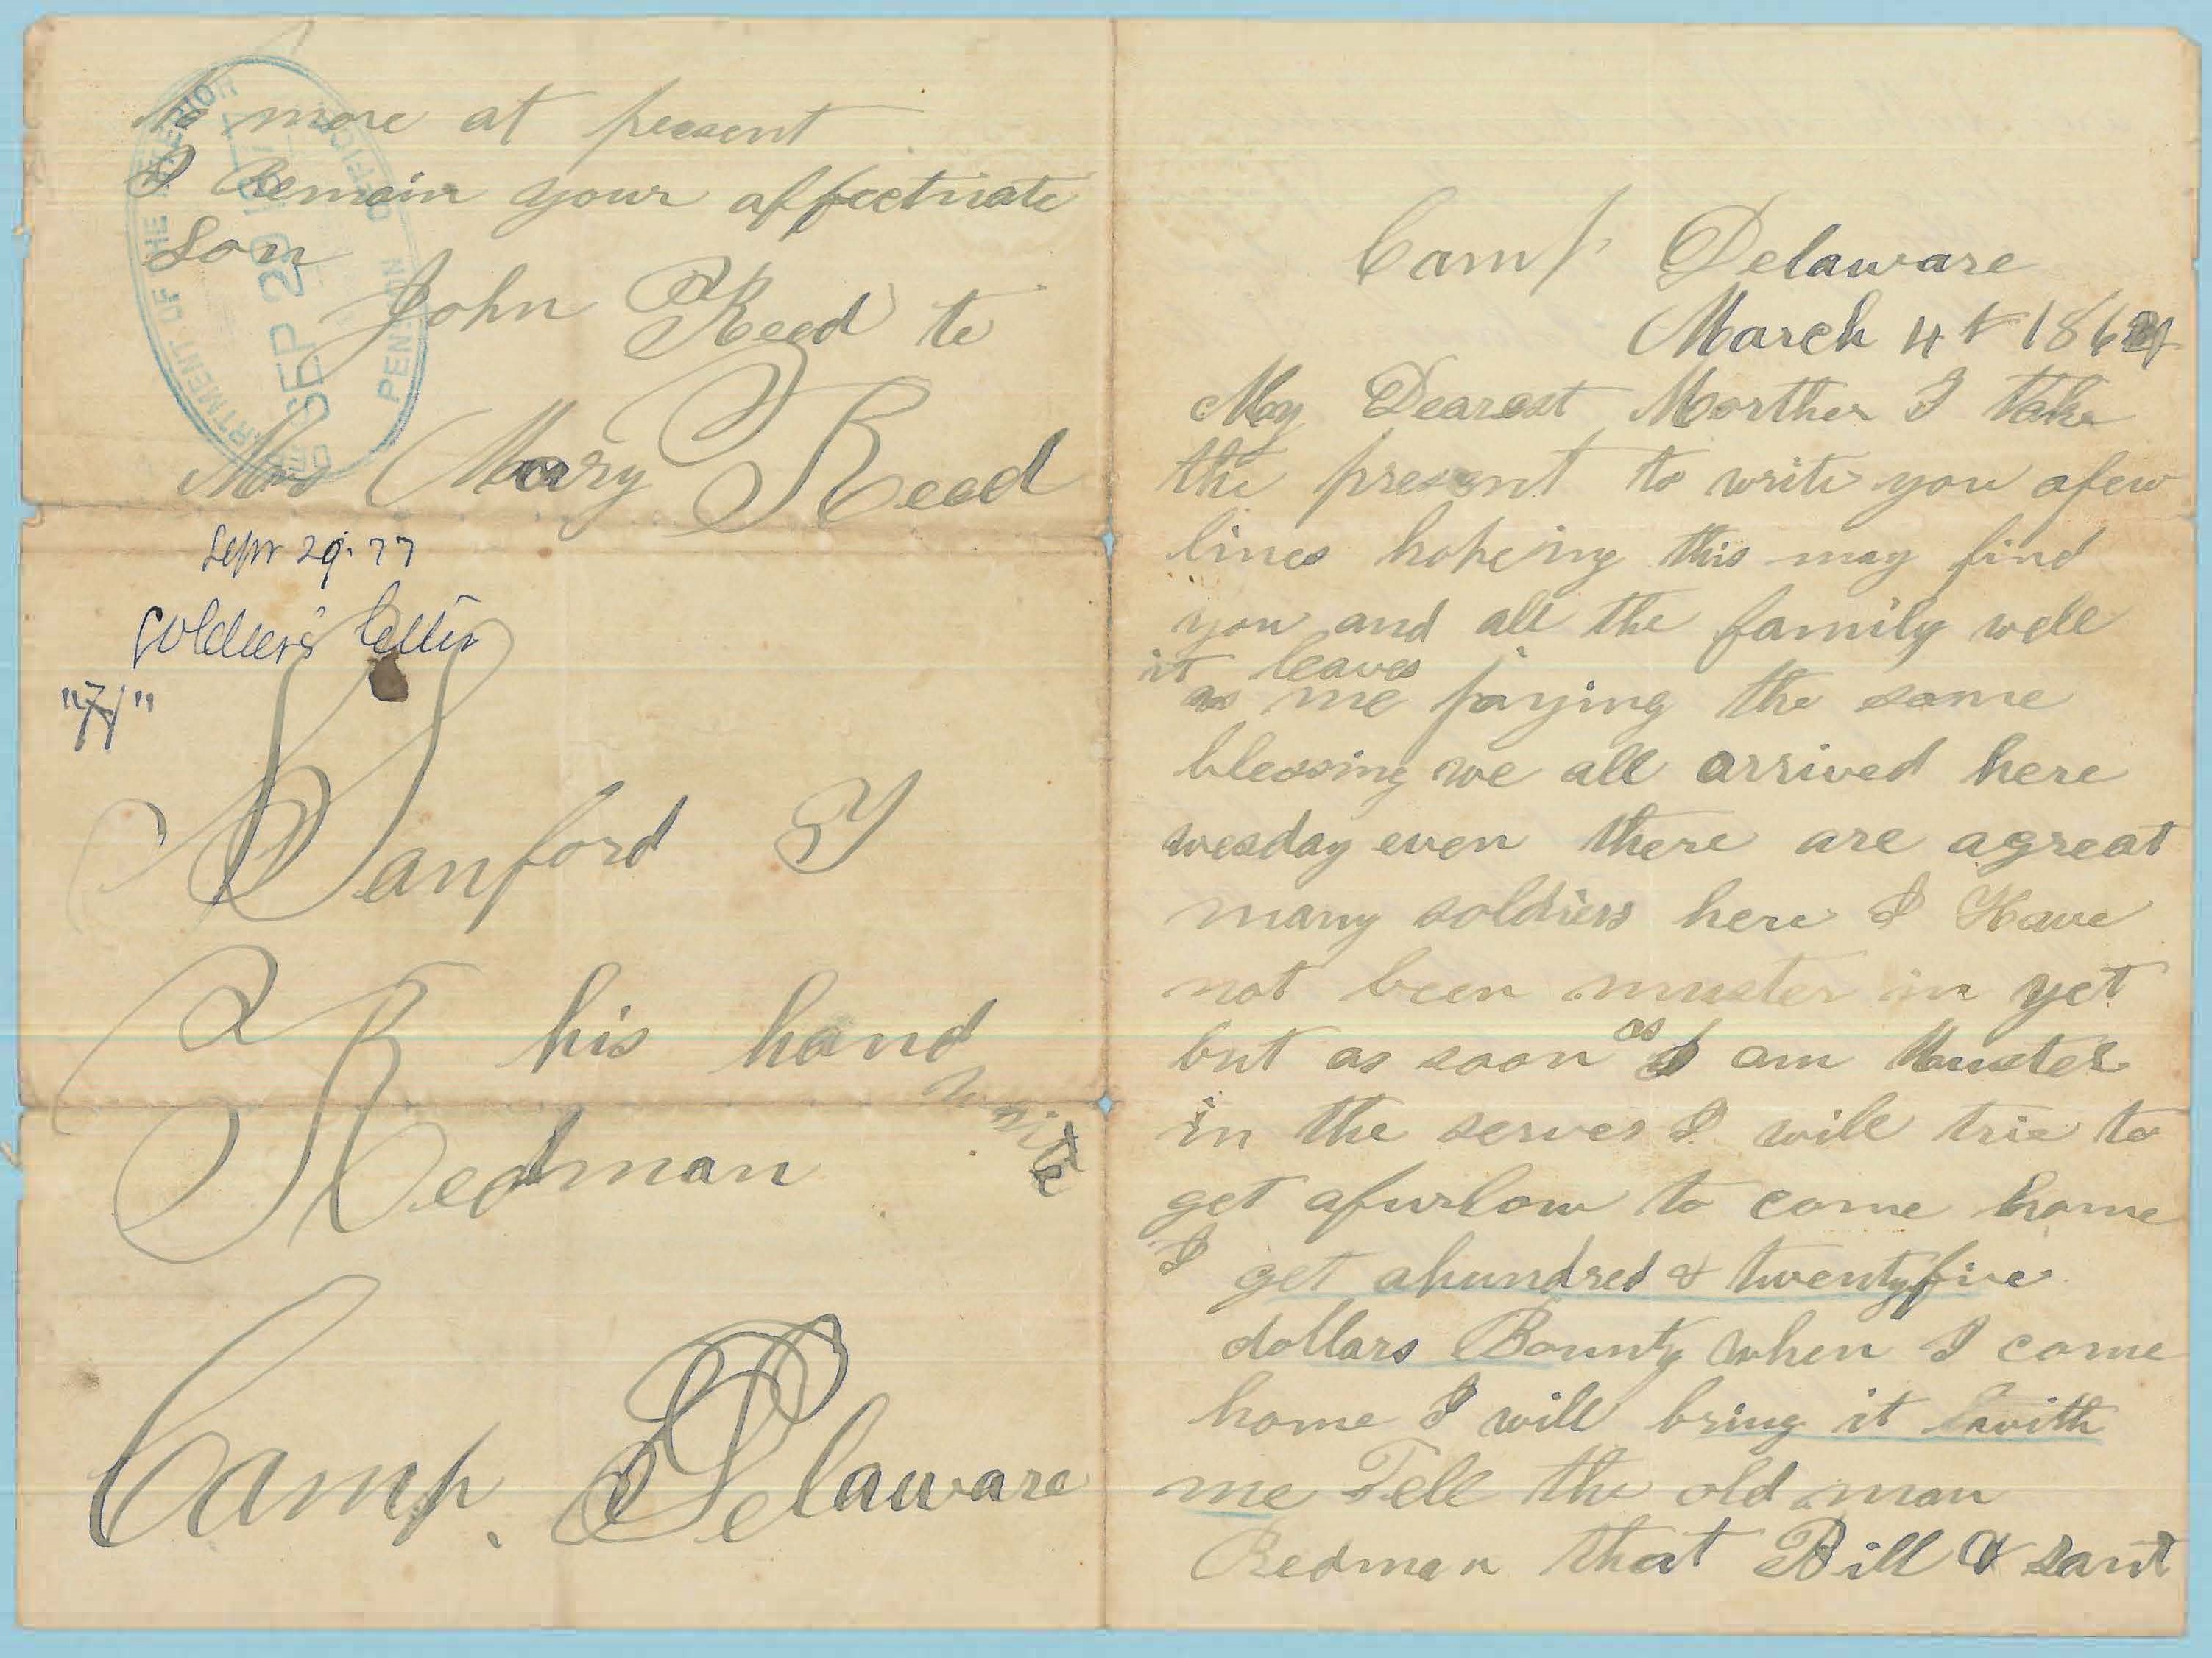 Camp Delaware
March 4t 1864
My Dearest Morther I take
the present to write you afew
lines hopeing this may find
you and all the family well
it leaves
as me joying the same
blessing we all arrived here
wesday even there are agreat
many soldiers here I Have
not been muster in yet
but as soon as I am Muster
in the serves I will trie to
get afurlow to come home
I get ahundred & twentyfive
dollars Bounty when I come
home I will bring it with
me Tell the old man
Redman that Bill & sant
No more at present
I remain your affectinate
Son
John Reed to
Mrs Mary Reed
DEPARTMENT OF THE INTERIOR
SEP 29 1877
PENSION OFFICE
Sepr 29. 77
Soldiers' letter
Sanford Y
his hand
write
Redman
Camp. Delaware